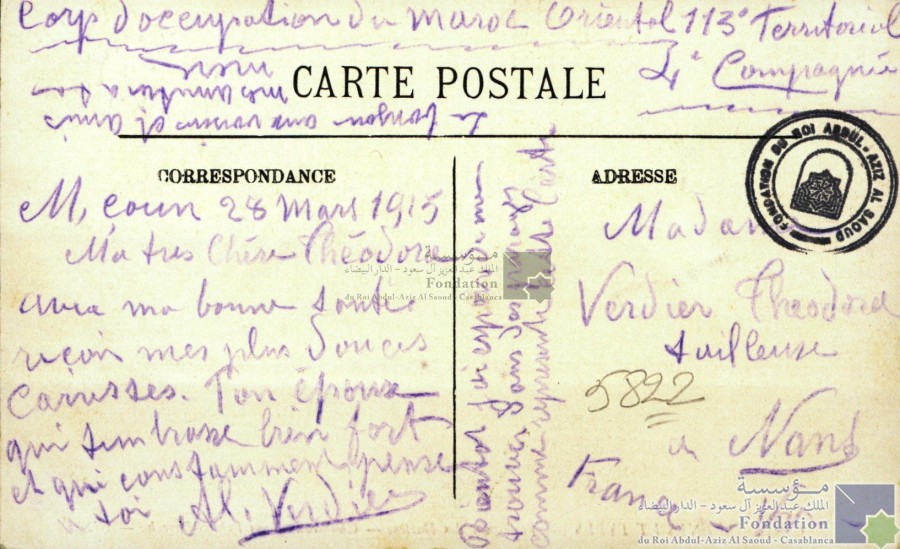 Corp d'occupation du Maroc Oriental 113e Territorial
4e Compagnie
CARTE POSTALE
le bonjour aux voisins et amis
CORRESPONDANCE
ADRESSE
M, Coun 28 Mars 1915
Ma tres Chère Théodore
avec ma bonne santé
reçoit mes plus douces
Caresses. Ton époux
qui t'embrasse bien fort
et qui constamment pense
a toi Al. Verdier
Bientot j'ai espoir de me
trouver dans ces parages
comme represente cette Carte
Madame
Verdier Theodore
tailleuse
a Nans
France
5822
FONDATION DU ROI ABDUL-AZIZ AL SAOUD
مؤسسة
الملك عبد العزيز آل سعود - الدار البيضاء
Fondation
du Roi Abdul-Aziz Al Saoud - Casablanca
مؤسسة
الملك عبد العزيز آل سعود - الدار البيضاء
Fondation
du Roi Abdul-Aziz Al Saoud - Casablanca